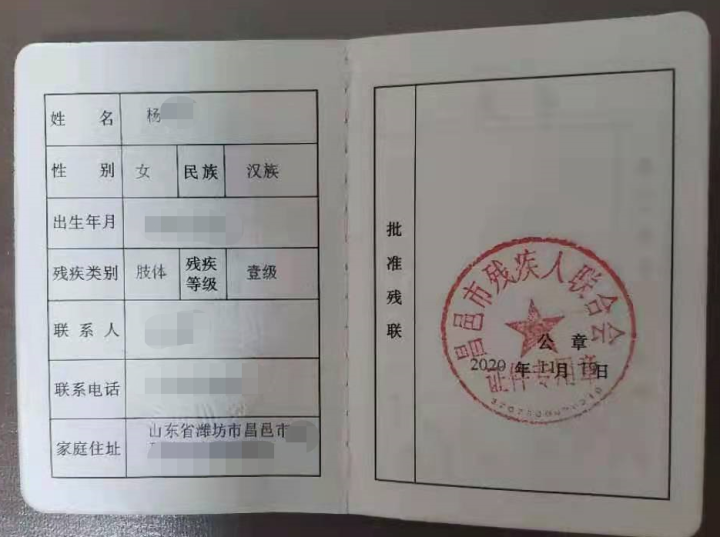 姓 名 杨
性 别 女 民族 汉族
出生年月
残疾类别 肢体 残疾等级 壹级
联 系 人
联系电话
家庭住址 山东省潍坊市昌邑市
批准残联
昌邑市残疾人联合会
公 章
2020 年 11 月 19 日
证件专用章